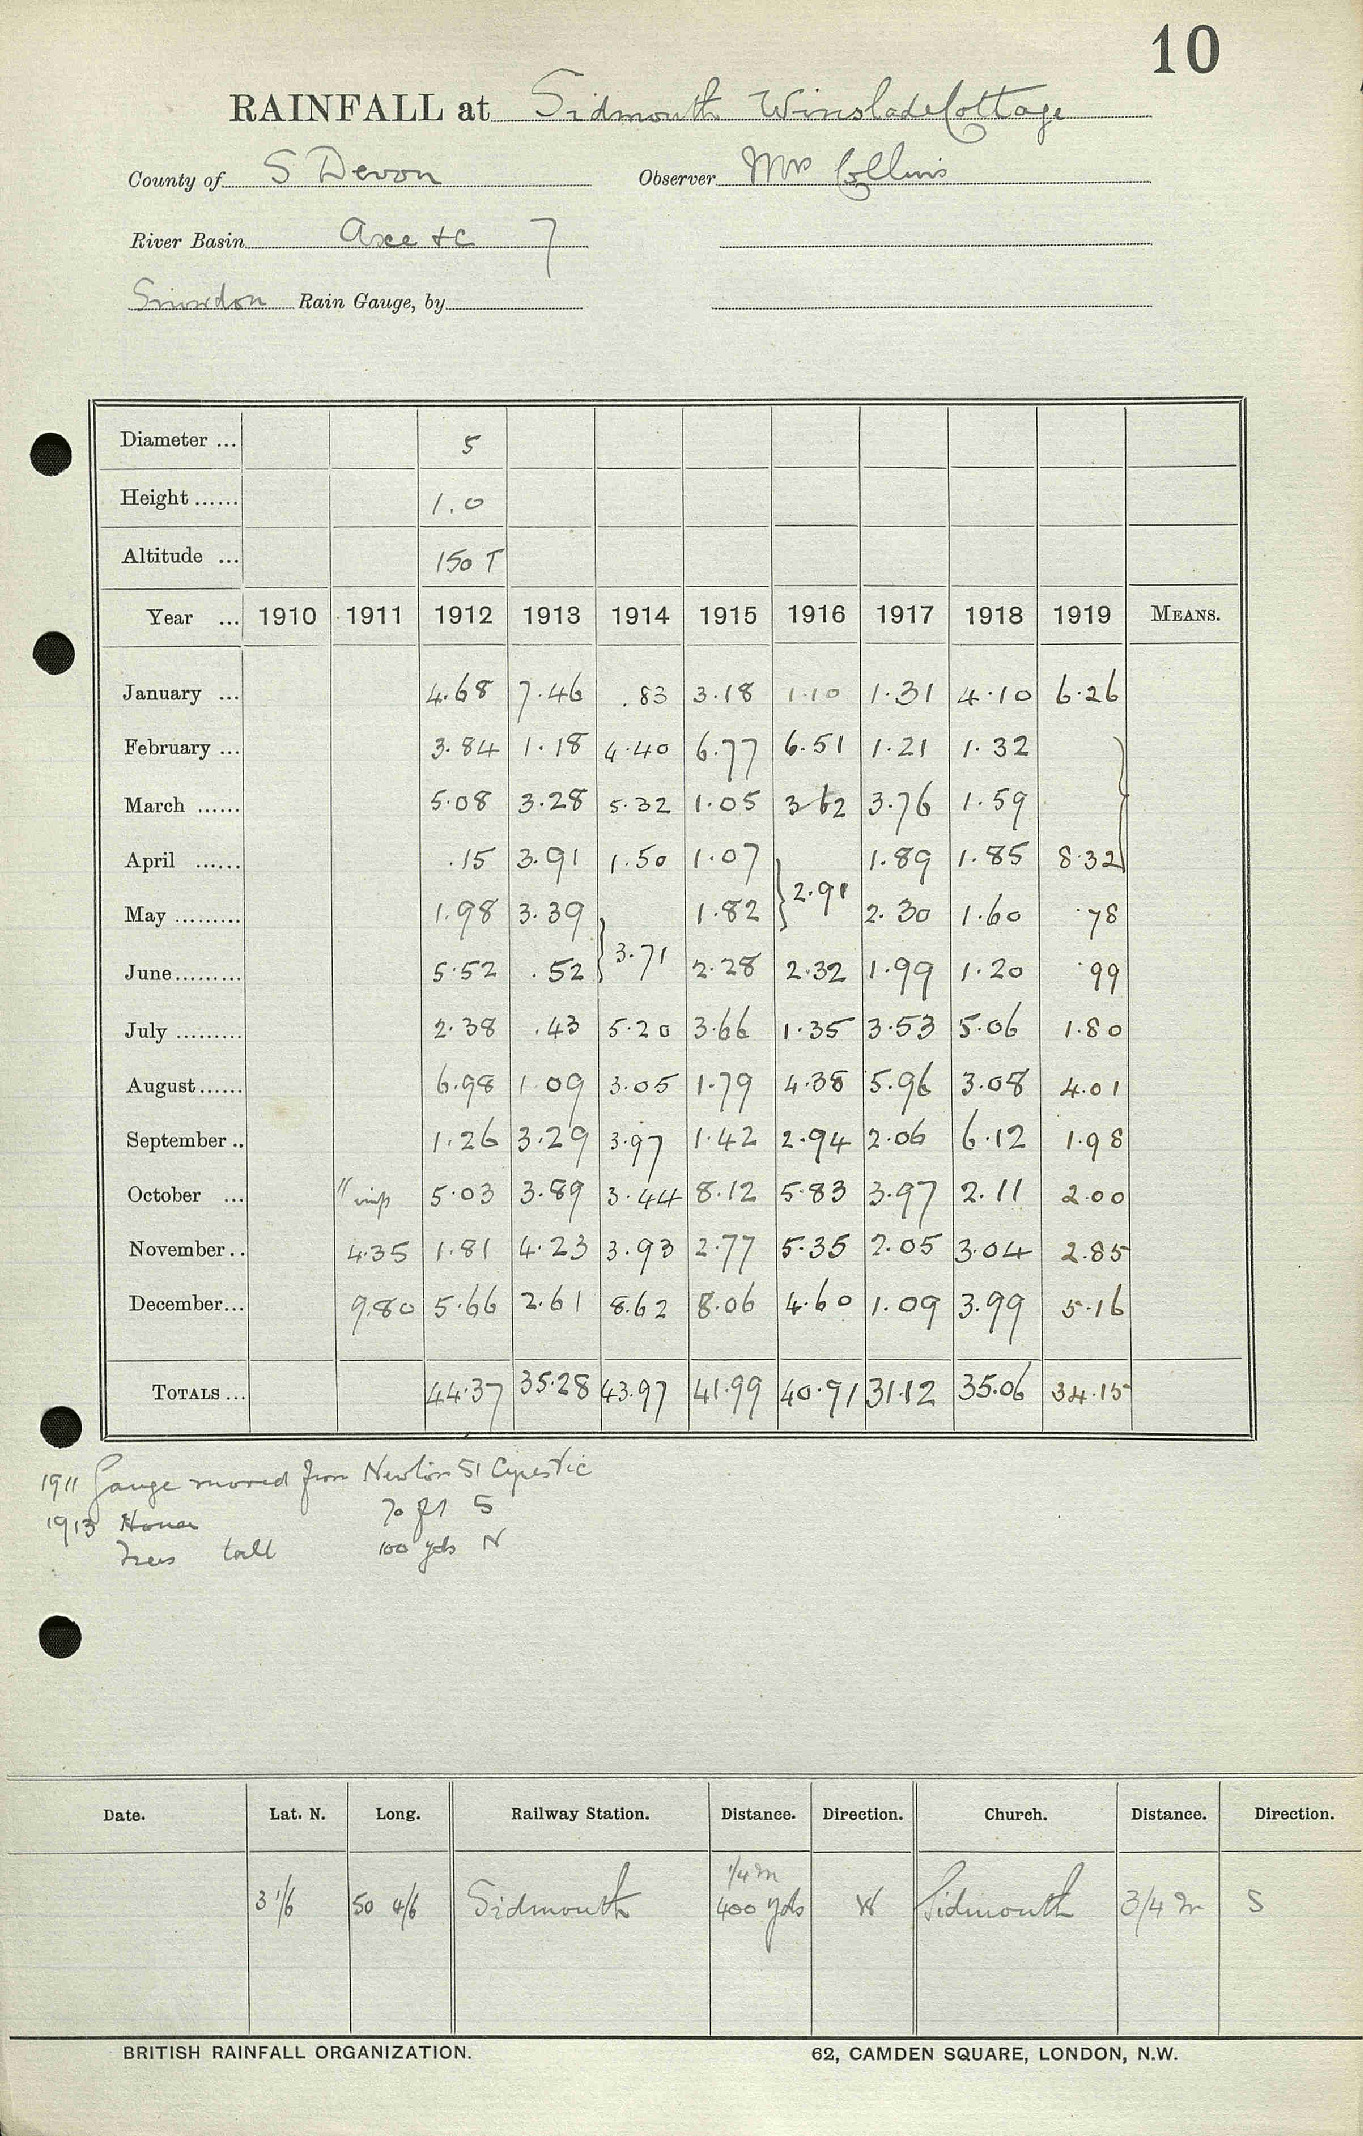 10
RAINFALL at Sidmouth Winslade Cottage
County of S Devon Observer Mrs Collins
River Basin Axe &c 7
Snowdon Rain Gauge, by
Diameter ... 5
Height ...... 1.0
Altitude ... 150 T
Year ... 1910 1911 1912 1913 1914 1915 1916 1917 1918 1919 MEANS.
January ... 4.68 7.46 .83 3.18 1.10 1.31 4.10 6.26
February ... 3.84 1.18 4.40 6.77 6.51 1.21 1.32
March ...... 5.08 3.28 5.32 1.05 3.62 3.76 1.59
April ...... .15 3.91 1.50 1.07 1.89 1.85 8.32
May ......... 1.98 3.39 1.82 } 2.91 2.30 1.60 .78
June ......... 5.52 .52 } 3.71 2.28 2.32 1.99 1.20 .99
July ......... 2.38 .43 5.20 3.66 1.35 3.53 5.06 1.80
August ...... 6.98 1.09 3.05 1.79 4.38 5.96 3.08 4.01
September .. 1.26 3.29 3.97 1.42 2.94 2.06 6.12 1.98
October ... 5.03 3.89 3.44 8.12 5.83 3.97 2.11 2.00
November .. 4.35 1.81 4.23 3.93 2.77 5.35 2.05 3.04 2.85
December ... 9.80 5.66 2.61 8.62 8.06 4.60 1.09 3.99 5.16
TOTALS ... 44.37 35.28 43.97 41.99 40.91 31.12 35.06 34.15
1911 Gauge moved from Newton St Cyres
1913 House 70 ft S
Trees tall 100 yds N
Date. Lat. N. Long. Railway Station. Distance. Direction. Church. Distance. Direction.
1/4 m
3 1/6 50 4/6 Sidmouth 400 yds W Sidmouth 3/4 m S
BRITISH RAINFALL ORGANIZATION. 62, CAMDEN SQUARE, LONDON, N.W.